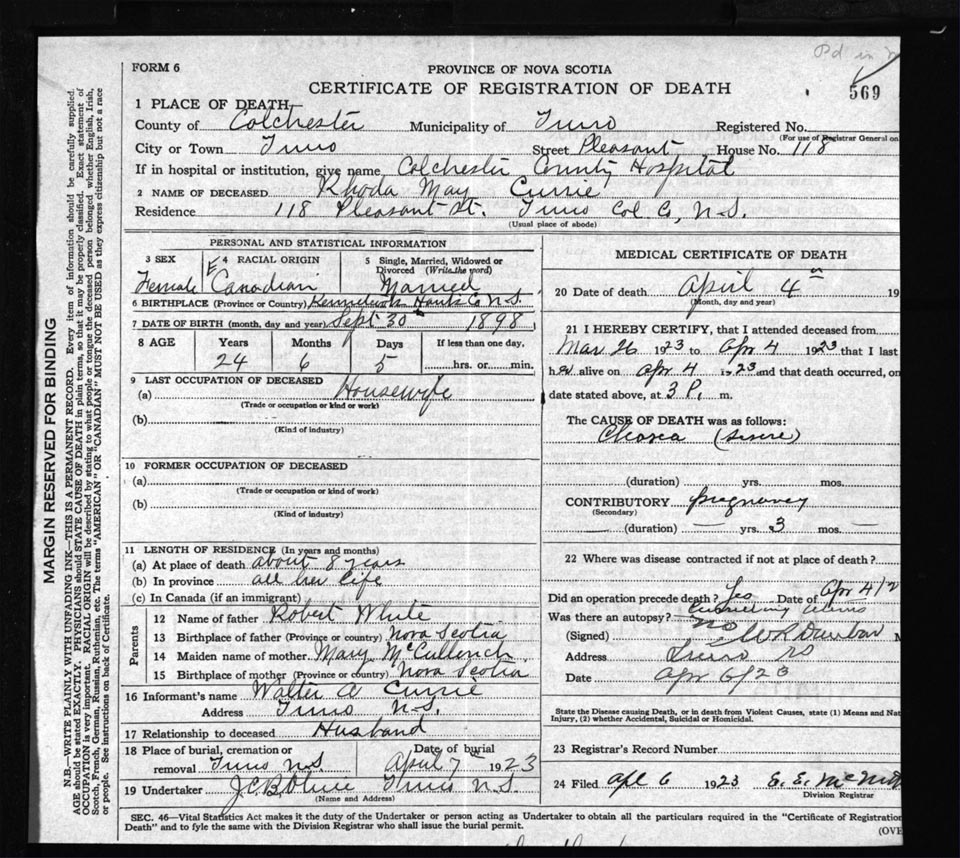 Pd in
FORM 6
PROVINCE OF NOVA SCOTIA
CERTIFICATE OF REGISTRATION OF DEATH
569
1 PLACE OF DEATH—
County of Colchester Municipality of Truro Registered No.
(For use of Registrar General on
City or Town Truro Street Pleasant House No. 118
If in hospital or institution, give name Colchester County Hospital
2 NAME OF DECEASED Rhoda May Currie
Residence 118 Pleasant St. Truro Col. Co, N.S.
(Usual place of abode)
PERSONAL AND STATISTICAL INFORMATION
3 SEX 4 RACIAL ORIGIN 5 Single, Married, Widowed or Divorced (Write the word)
Female E Canadian Married
6 BIRTHPLACE (Province or Country) Hants Co N.S.
7 DATE OF BIRTH (month, day and year) Sept 30 1898
8 AGE Years Months Days If less than one day,
24 6 5 hrs. or min.
9 LAST OCCUPATION OF DECEASED
(a) Housewife
(Trade or occupation or kind or work)
(b)
(Kind of industry)
10 FORMER OCCUPATION OF DECEASED
(a)
(Trade or occupation or kind or work)
(b)
(Kind of industry)
11 LENGTH OF RESIDENCE (In years and months)
(a) At place of death about 8 years
(b) In province all her life
(c) In Canada (if an immigrant)
Parents
12 Name of father Robert White
13 Birthplace of father (Province or country) Nova Scotia
14 Maiden name of mother Mary McCulloch
15 Birthplace of mother (Province or country) Nova Scotia
16 Informant's name Walter A Currie
Address Truro N.S.
17 Relationship to deceased Husband
18 Place of burial, cremation or removal Truro N.S Date of burial April 7 1923
19 Undertaker Truro N.S.
(Name and Address)
MEDICAL CERTIFICATE OF DEATH
20 Date of death April 4 19
(Month, day and year)
21 I HEREBY CERTIFY, that I attended deceased from
Mar 26 1923 to Apr 4 1923 that I last
h er alive on Apr 4 1923 and that death occurred, on
date stated above, at 3 P. m.
The CAUSE OF DEATH was as follows:
Chorea (severe)
(duration) yrs. mos.
CONTRIBUTORY pregnancy
(Secondary)
— (duration) — yrs. 3 mos. —
22 Where was disease contracted if not at place of death?
Did an operation precede death? Yes Date of Apr 4/2
Was there an autopsy? no
(Signed) Dunbar M
Address Truro NS
Date Apr 6/23
State the Disease causing Death, or in death from Violent Causes, state (1) Means and Nat
Injury, (2) whether Accidental, Suicidal or Homicidal.
23 Registrar's Record Number
24 Filed Apl 6 1923 E. E. McNutt
Division Registrar
SEC. 46—Vital Statistics Act makes it the duty of the Undertaker or person acting as Undertaker to obtain all the particulars required in the "Certificate of Registration
Death" and to fyle the same with the Division Registrar who shall issue the burial permit.
(OVE
MARGIN RESERVED FOR BINDING
N.B.—WRITE PLAINLY WITH UNFADING INK—THIS IS A PERMANENT RECORD. Every item of information should be carefully supplied.
AGE should be stated EXACTLY. PHYSICIANS should STATE CAUSE OF DEATH in plain terms, so that it may be properly classified. Exact statement of
OCCUPATION is very important. RACIAL ORIGIN will be described by stating to what people or tongue the deceased person belonged whether English, Irish,
Scotch, French, German, Russian, Ruthenian, etc. The terms "AMERICAN" OR "CANADIAN" MUST NOT BE USED as they express citizenship but not a race
or people. See instructions on back of Certificate.